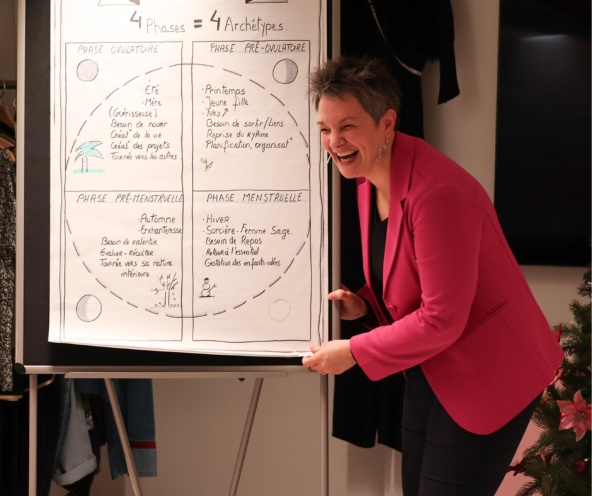 4 Phases = 4 Archétypes
PHASE OVULATOIRE
Été
- Mère
(Guérisseuse)
Besoin de nouer
Créat° de la vie
Créat° des projets
Tournée vers les autres
PHASE PRÉ-OVULATOIRE
- Printemps
- Jeune fille
Besoin de sortir/Liens
Reprise du rythme
Planification, organisat°
PHASE PRÉ-MENSTRUELLE
- Automne
- Enchanteresse
Besoin de ralentir
Évaluer - Récolter
Tournée vers sa nature
intérieure.
PHASE MENSTRUELLE
- Hiver
- Sorcière - Femme Sage
Besoin de Repos
Retour à l'essentiel
Gestation des enfants-idées